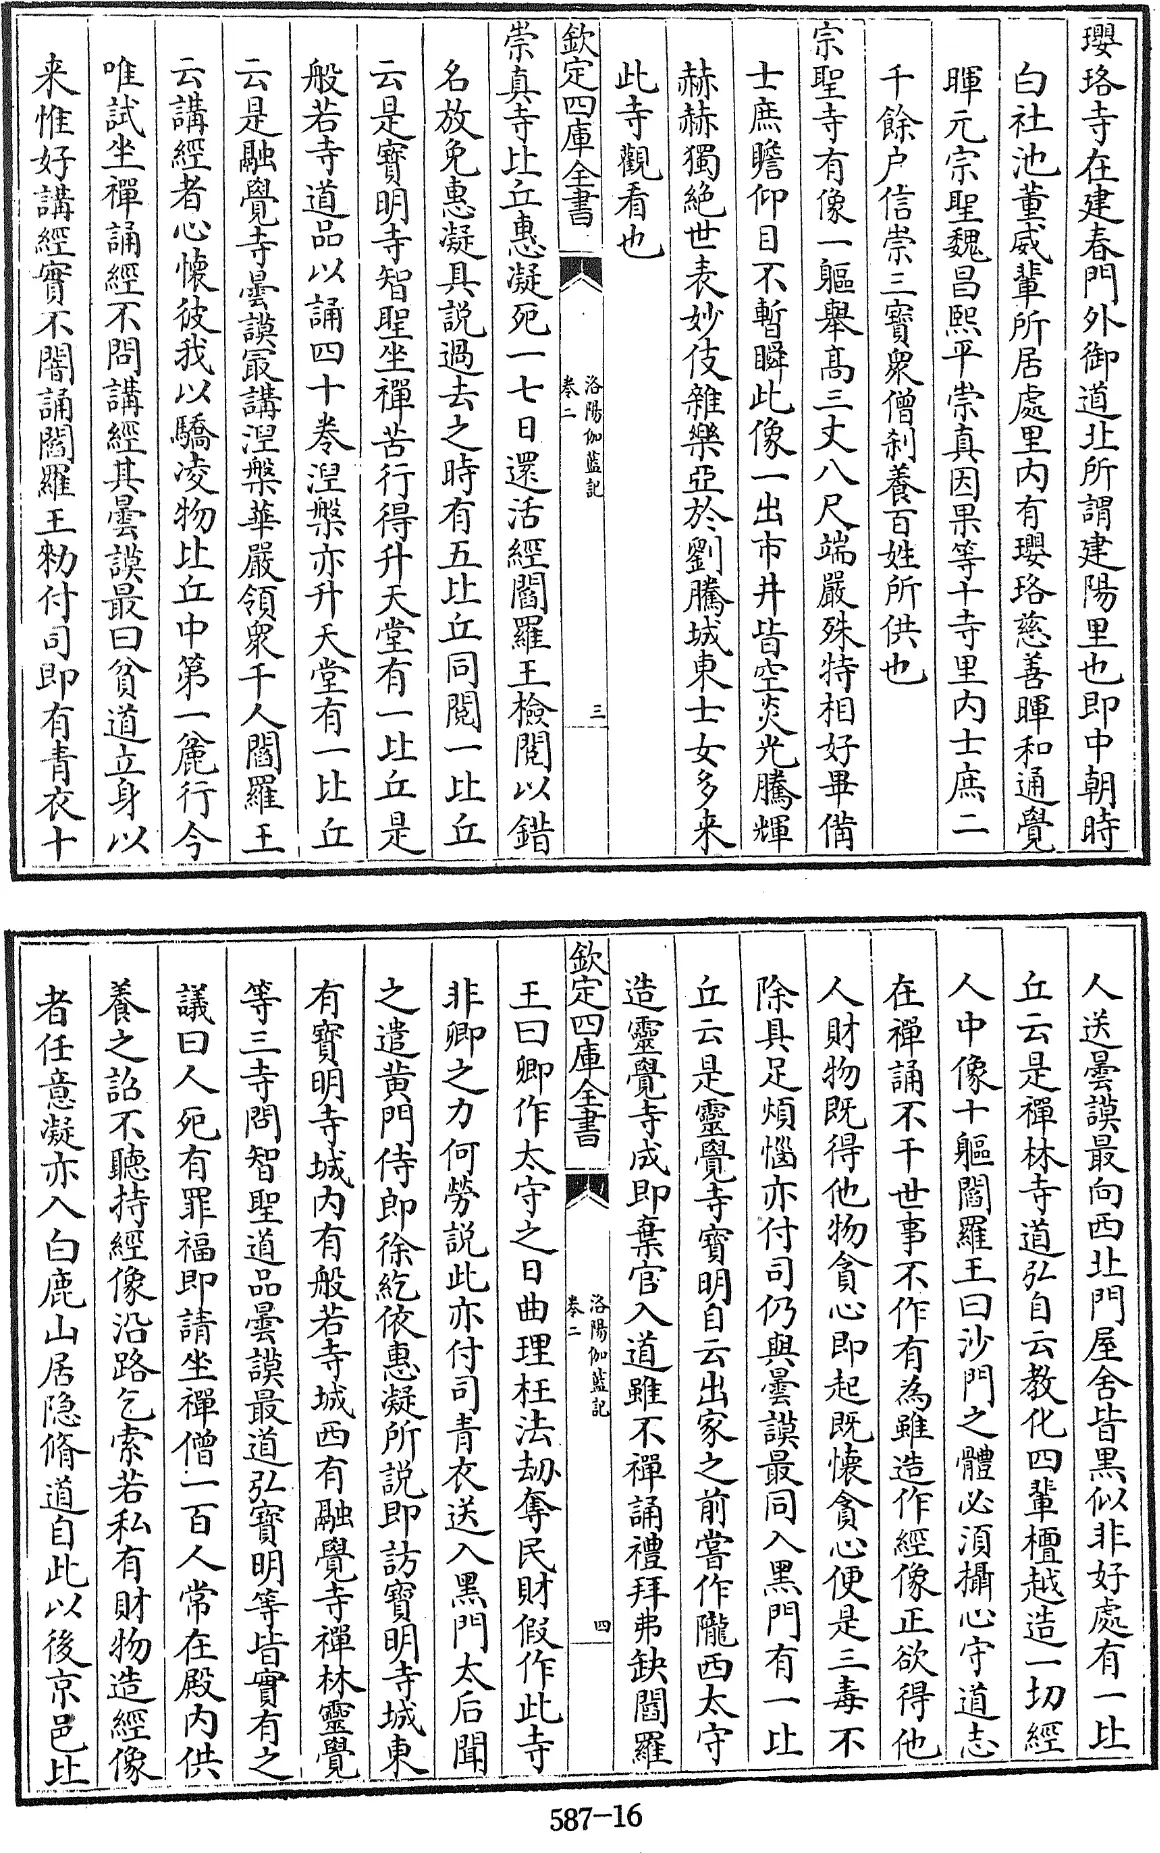 瓔珞寺在建春門外御道北所謂建陽里也即中朝時
白社池董威輦所居處里內有瓔珞慈善暉和通覺
暉元宗聖魏昌熙平崇真因果等十寺里內士庶二
千餘户信崇三寶衆僧刹養百姓所供也
宗聖寺有像一軀舉髙三丈八尺端嚴殊特相好畢備
士庶瞻仰目不暫瞬此像一出市井皆空炎光騰輝
赫赫獨絶世表妙伎雜樂亞於劉騰城東士女多來
此寺觀看也
欽定四庫全書
洛陽伽藍記
卷二
三
崇真寺比丘惠凝死一七日還活經閻羅王檢閱以錯
名放免惠凝具説過去之時有五比丘同閱一比丘
云是寳明寺智聖坐禪苦行得升天堂有一比丘是
般若寺道品以誦四十卷湼槃亦升天堂有一比丘
云是融覺寺曇謨冣講湼槃華嚴領衆千人閻羅王
云講經者心懐彼我以驕凌物比丘中第一麄行今
唯試坐禪誦經不問講經其曇謨最曰貧道立身以
来惟好講經實不闇誦閻羅王勑付司即有青衣十
人送曇謨最向西北門屋舍皆黒似非好處有一比
丘云是禪林寺道弘自云教化四輩檀越造一切經
人中像十軀閻羅王曰沙門之體必須攝心守道志
在禪誦不干世事不作有為雖造作經像正欲得他
人財物既得他物貪心即起既懐貪心便是三毒不
除具足煩惱亦付司仍與曇謨最同入黒門有一比
丘云是靈覺寺寳明自云出家之前嘗作隴西太守
造靈覺寺成即棄官入道雖不禪誦禮拜弗缺閻羅
欽定四庫全書
洛陽伽藍記
卷二
四
王曰卿作太守之日曲理枉法刼奪民財假作此寺
非卿之力何勞説此亦付司青衣送入黒門太后聞
之遣黄門侍郎徐紇依惠凝所説即訪寳明寺城東
有寳明寺城内有般若寺城西有融覺寺禪林靈覺
等三寺問智聖道品曇謨最道弘寳明等皆實有之
議曰人死有罪福即請坐禪僧一百人常在殿内供
養之詔不聽持經像沿路乞索若私有財物造經像
者任意凝亦入白鹿山居隠脩道自此以後京邑比
587-16